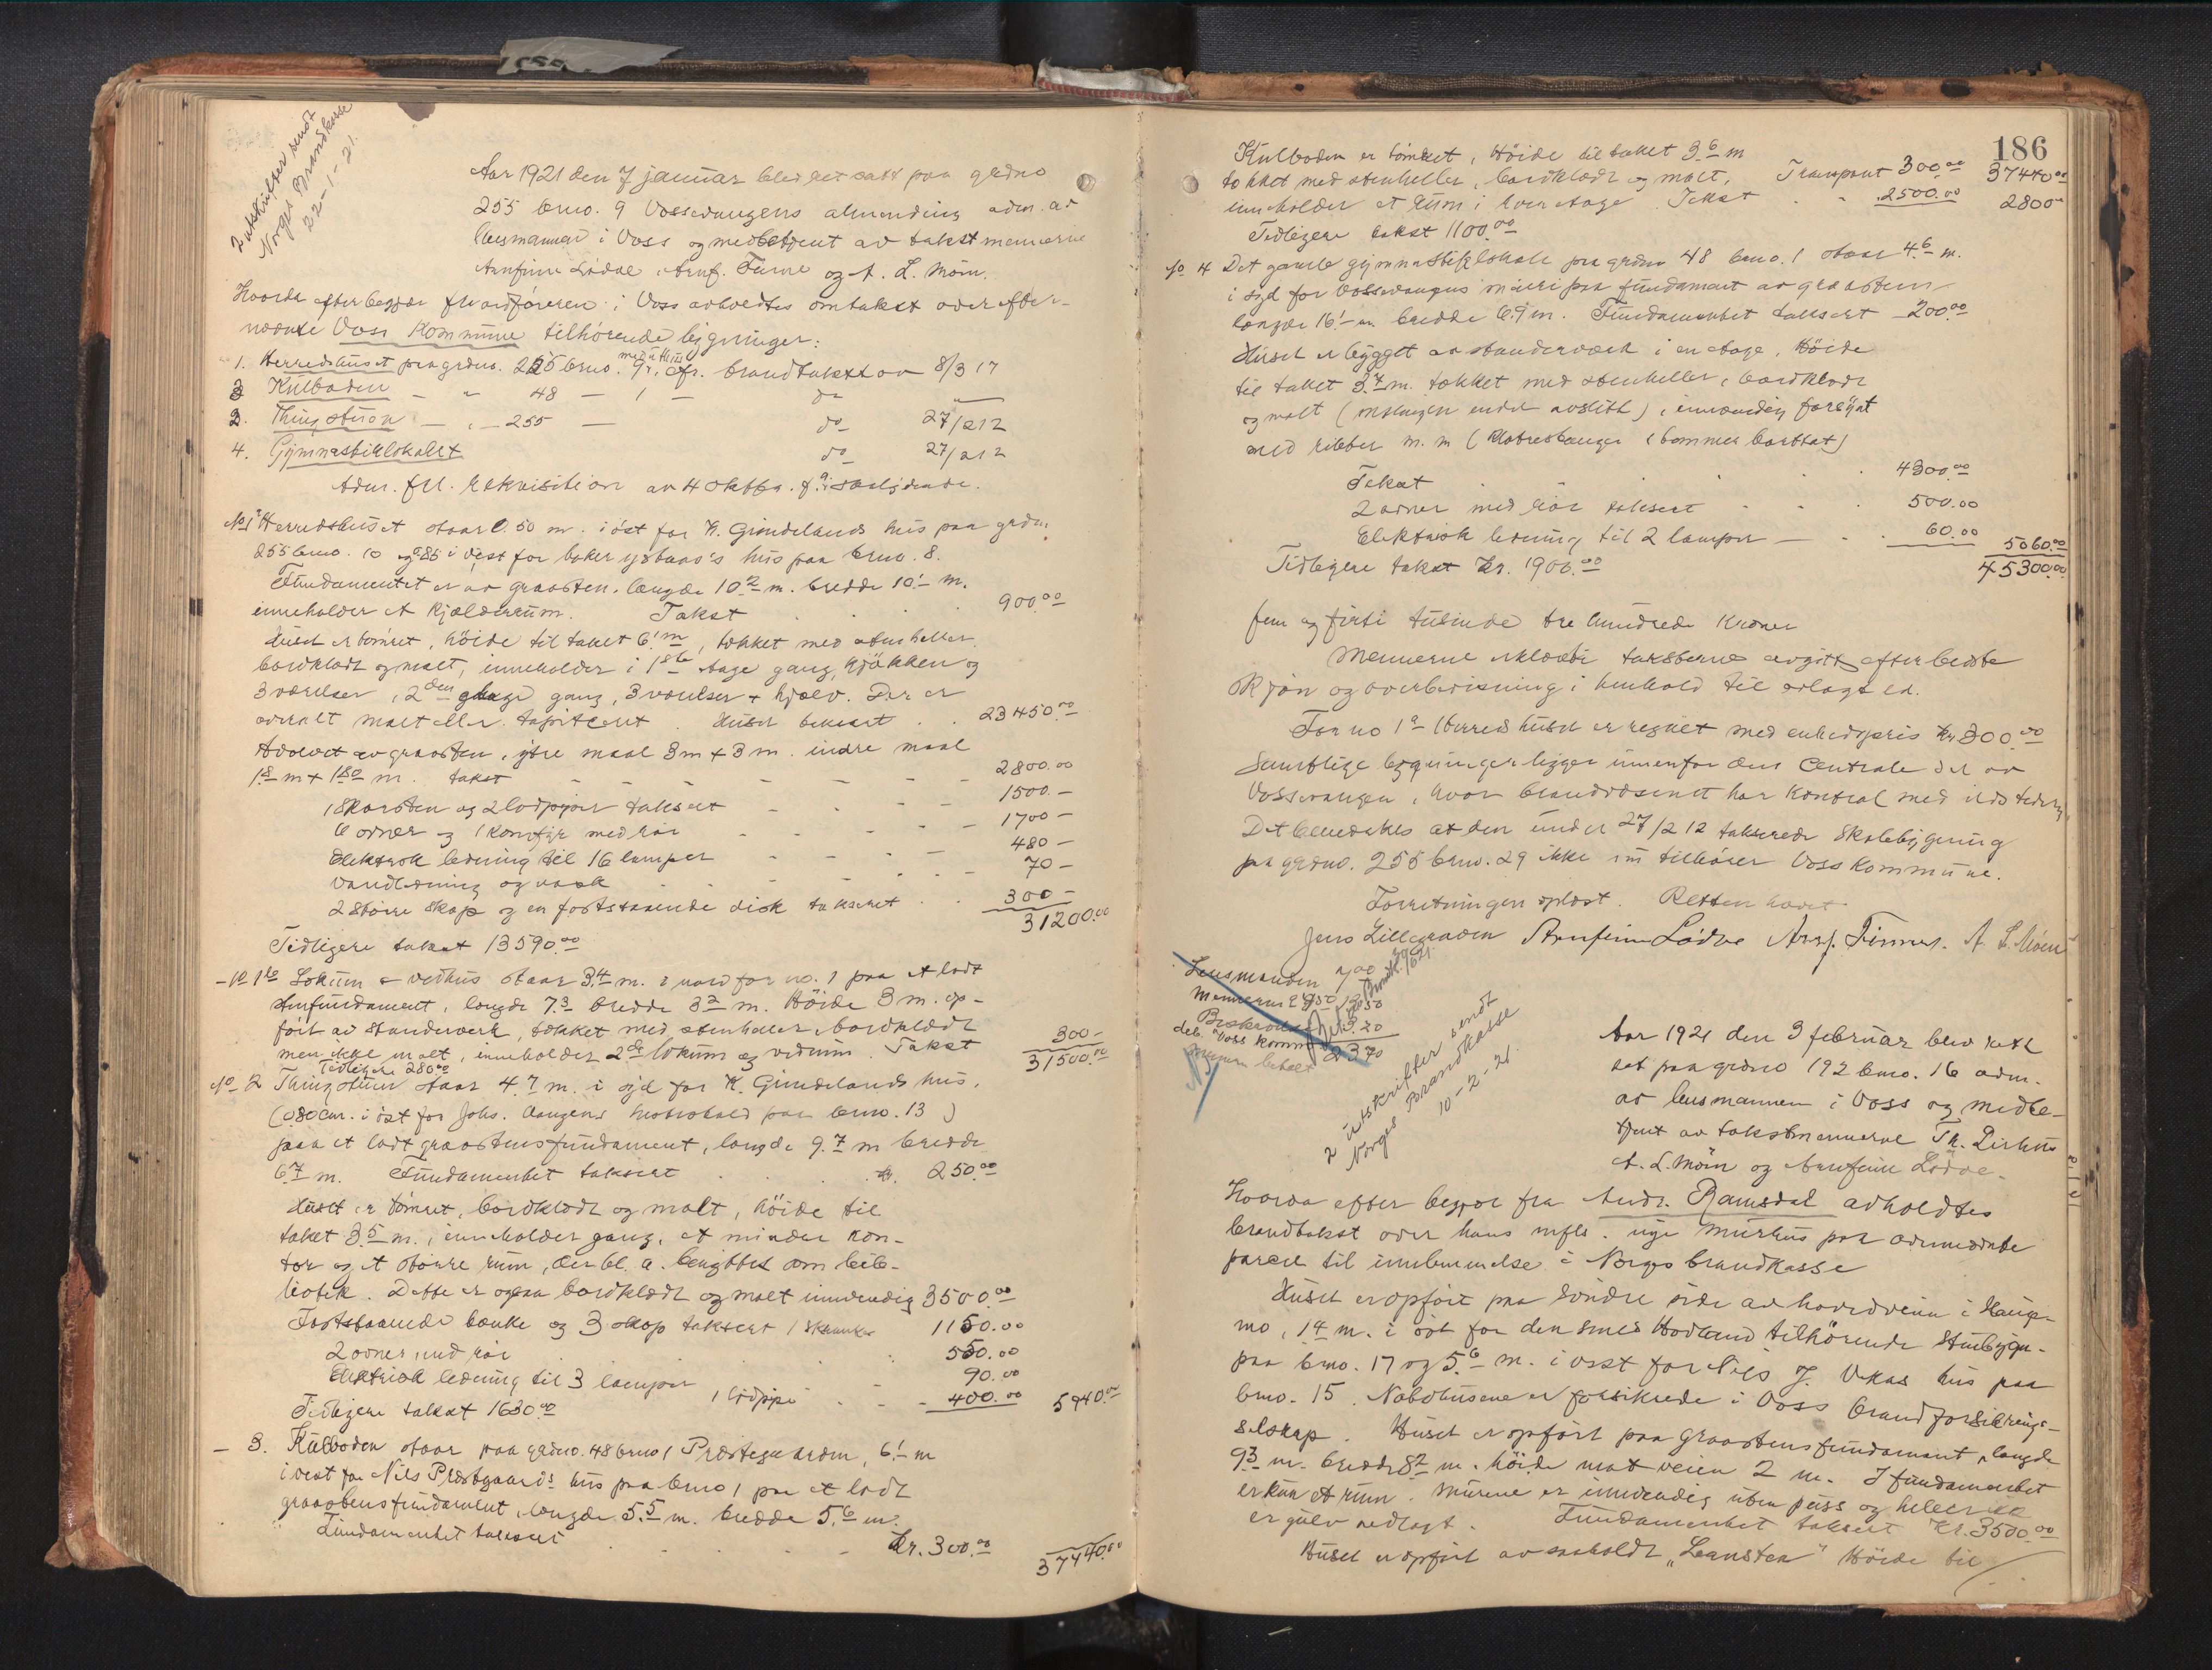 2 utskrifter sendt
Norges Brandkasse
22-1-21.
Aar 1921 den 7 januar blev ret satt paa grdno
255 brno. 9 Vossevangens almending adm. av
lensmannen i Voss og medbetjent av takstmennerne
Arnfinn Lödve, Arnf. Finne og A. L. Möen.
Hvorda efter begjær fra ordföreren i Voss avholdtes omtakst over efter-
nævnte Voss Kommune tilhörende bygninger:
1. Herredshuset paa grdno. 255 brno. 9, cfr. brandtakst av 8/3 17
3 Kulboden - " 48 - 1 - do
2. Thingstuen - " - 255 - do 27/2 12
4. Gymnastiklokalet do 27/2 12
Adm. frl. rekvisition av 4 oktbr. f.a.
No 1a Herredshuset staar 0.50 m. i öst for K. Gjindelands hus paa grdn.
255 brno. 10 og 0.85 i vest for baker Ystaas's hus paa brno. 8.
Fundamentet er av graasten, længde 10.2 m. bredde 10.1 m.
inneholder et kjælderrum. Takst 900.00
Huset er tömret, höide til taket 6.1 m, tækket med stenheller
bordklædt og malt, inneholder i 1ste etage gang, kjökken og
3 værelser, 2den etage gang, 3 værelser + kjøv. Der er
overalt malt eller tapiceret. Huset taksert . . 23450.00
Hvælvet av graasten, ytre maal 3 m + 3 m. indre maal
1.8 m + 1.80 m. takst - - - - - 2800.00
1 Skorsten og 2 lodpiper taksert - - - - 1500.-
6 ovner og 1 komfyr med rör - - - - 1700-
Elektrisk ledning til 16 lamper - - - - 480-
Vandledning og vask - - - - 70-
2 större skap og en faststaaende disk taksert . . 300-
31200.00
Tidligere takst 13590.00
- No 1b Lokum & vedhus staar 3.4 m. i nord for no. 1 paa et lödt
stenfundament, længde 7.3 bredde 3.2 m. Höide 3 m. op-
fört av standerverk, tækket med stenheller, bordklædt
men ikke malt, inneholder 2de lokum og vedrum. Takst 300-
Tidligere 280.00 31500.00
No 2 Thingstuen staar 4.7 m. i syd for K. Gjindelands hus,
(0.80 cm. i öst for Johs. Vangens motorstald paa brno. 13)
paa et lödt graastensfundament, længde 9.7 m bredde
6.7 m. Fundamentet taksert . . . kr. 250.00
Huset er tömret, bordklædt og malt, höide til
taket 3.5 m. inneholder gang, et mindre kon-
tor og et större rum, der bl. a. benyttes som bib-
liotek. Dette er ogsaa bordklædt og malt innvendig 3500.00
Faststaaende bænke og 3 skap taksert 1 skranke 1150.00
2 ovner med rör 550.00
Elektrisk ledning til 3 lamper 90.00
Tidligere takst 1630.00 1 lodpipe - - 400.00 5940.00
- 3. Kulboden staar paa grdno. 48 brno 1 Præstegaarden, 6.1 m
i vest for Nils Præstgaards hus paa brno 1 paa et lödt
graastensfundament, længde 5.5 m. bredde 5.6 m.
Fundamentet taksert . . . . Kr. 300.00
37440.00
186
Kulboden er tömret, höide til taket 3.6 m
tækket med stenheller, bordklædt og malt, Transport 300.00 37440.00
inneholder et rum i hver etage. Takst . . 2500.00 2800.00
Tidligere takst 1100.00
No 4 Det gamle gymnastiklokale paa grdno 48 brno. 1 staar 4.6 m.
i syd for Vossevangens paa fundament av graasten
længde 16.1 m. bredde 6.9 m. Fundamentet taksert - 200.00
Huset er bygget av standerværk i en etage, höide
til taket 3.7 m. tækket med stenheller, bordklædt
og malt (malingen endel avslitt), innvendig forsynt
med ribber m. m (Klatrestænger & bommer borttat)
Takst 4300.00
2 ovner med rör taksert 500.00
Elektrisk ledning til 2 lamper - 60.00 5060.00
Tidligere takst Kr. 1900.00 45300.00
fem og förti tusinde tre hundrede kroner
Mennerne erklærte taksterne avgitt efter bedste
skjön og overbevisning i henhold til avlagt ed.
For no 1a Herredshuset er regnet med enhedspris Kr 300.00
Samtlige bygninger ligger innenfor den centrale del av
Vossevangen, hvor brandvæsenet har kontrol med ildsteder.
Det bemerkes at den under 27/2 12 takserte skolebygning
paa grdno. 255 brno. 29 ikke nu tilhörer Voss Kommune.
Forretningen oplæst. Retten hævet.
Jens Lillegraven Arnfinn Lödve Arnf. Finne. A. L. Möen
Lensmanden 7.00
Mennerne
Beskrivelse
deb. Voss kommune 23.70
2 utskrifter sendt
Norges Brandkasse
10-2-21.
Aar 1921 den 3 februar blev rett
sat paa grdno 192 brno. 16 adm.
av lensmannen i Voss og medbe-
tjent av takstmennerne Th. Dirhus
A. L. Möen og Arnfinn Lödve.
Hvorda efter begjær fra Andr. Ramsdal avholdtes
brandtakst over hans nyopf. nye murhus paa ovennævnte
parcel til innlemmelse i Norges brandkasse
Huset er opfört paa söndre side av hovedveien i Haug-
mo, 14 m. i öst for den smed Hodland tilhörende stuebygn.
paa brno. 17 og 5.6 m. i vest for Nils J. Ukas hus paa
brno. 15. Nabohusene er forsikrede i Voss brandforsikrings-
selskap. Huset er opfört paa graastensfundament, længde
9.3 m. bredde 8.2 m. höide mot veien 2 m. I fundamentet
er kun et rum. Murene er innvendig uten puss og heller ikke
er gulv nedlagt. Fundamentet taksert Kr. 3500.00
Huset er opfört av saakaldt "Leansten" Höide til